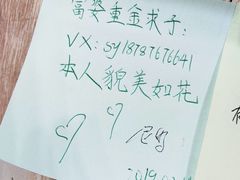 富婆重金求子:
VX:sy18787676641
本人貌美如花
2019.02.1